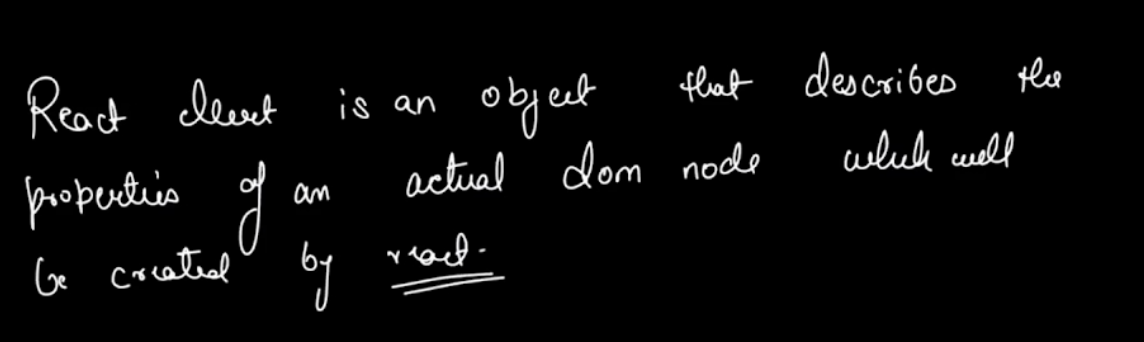 React element is an object that describes the
properties of an actual dom node which will
be created by react.